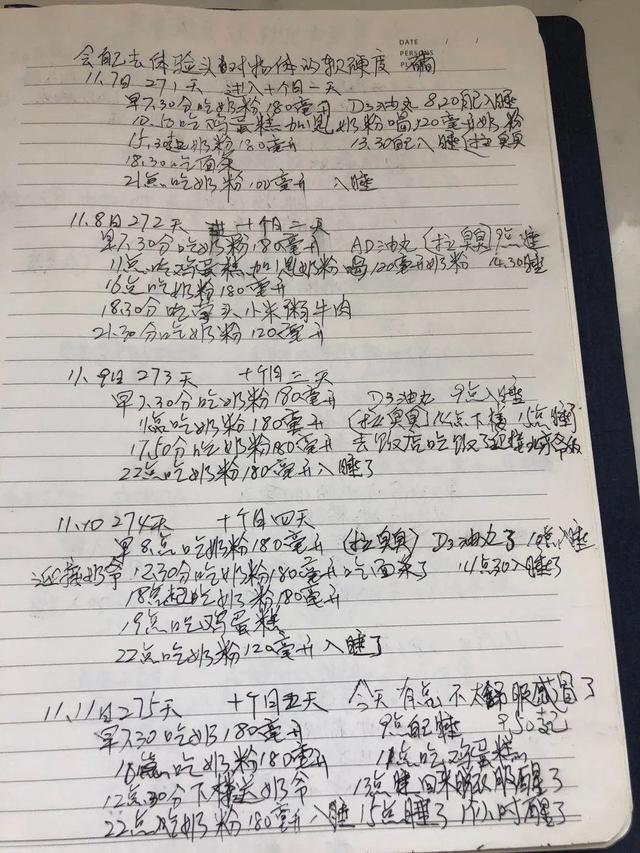 会自己去体验头对物体的软硬度
DATE / /
PERSONS
11.7日 271天 进入十个月一天
早7.30分吃奶粉180毫升 D3油丸 8.20自己入睡
10.50吃鸡蛋糕加 奶粉喝120毫升奶粉
15.30起奶粉180毫升 13.30自己入睡(拉臭臭
18.30吃面条
21点吃奶粉100毫升 入睡
11.8日 272天 十个月二天
早7.30分吃奶粉180毫升 AD油丸(拉臭臭)9点睡
11点吃鸡蛋糕加 奶粉喝120毫升奶粉 14.30睡
16点吃奶粉180毫升
18.30分吃 头小米粥牛肉
21.30分吃奶粉120毫升
11.9日 273天 十个月三天
早7.30分吃奶粉180毫升 D3油丸 9点入睡
11点吃奶粉180毫升 (拉臭臭)14点下楼 15点睡了
17.50分吃奶粉180毫升 去饭店吃饭了迎接 爷
22点吃奶粉180毫升入睡了
11.10 274天 十个月四天
早8点吃奶粉180毫升(拉臭臭) D3油丸了 10点入睡
迎接奶爷 12.30分吃奶粉180毫升吃面条了 14点30入睡了
18点起吃奶粉180毫升
19点吃鸡蛋糕
22点吃奶粉120毫升入睡了
11.11日 275天 十个月五天 今天有点不太舒服感冒了
早7.30吃奶粉180毫升 9点自己睡 9.50起
10点吃奶粉180毫升 11点吃鸡蛋糕
12点30分下楼送奶爷 13点睡回来脱衣服醒了
22点吃奶粉180毫升入睡 15点睡了 小时醒了